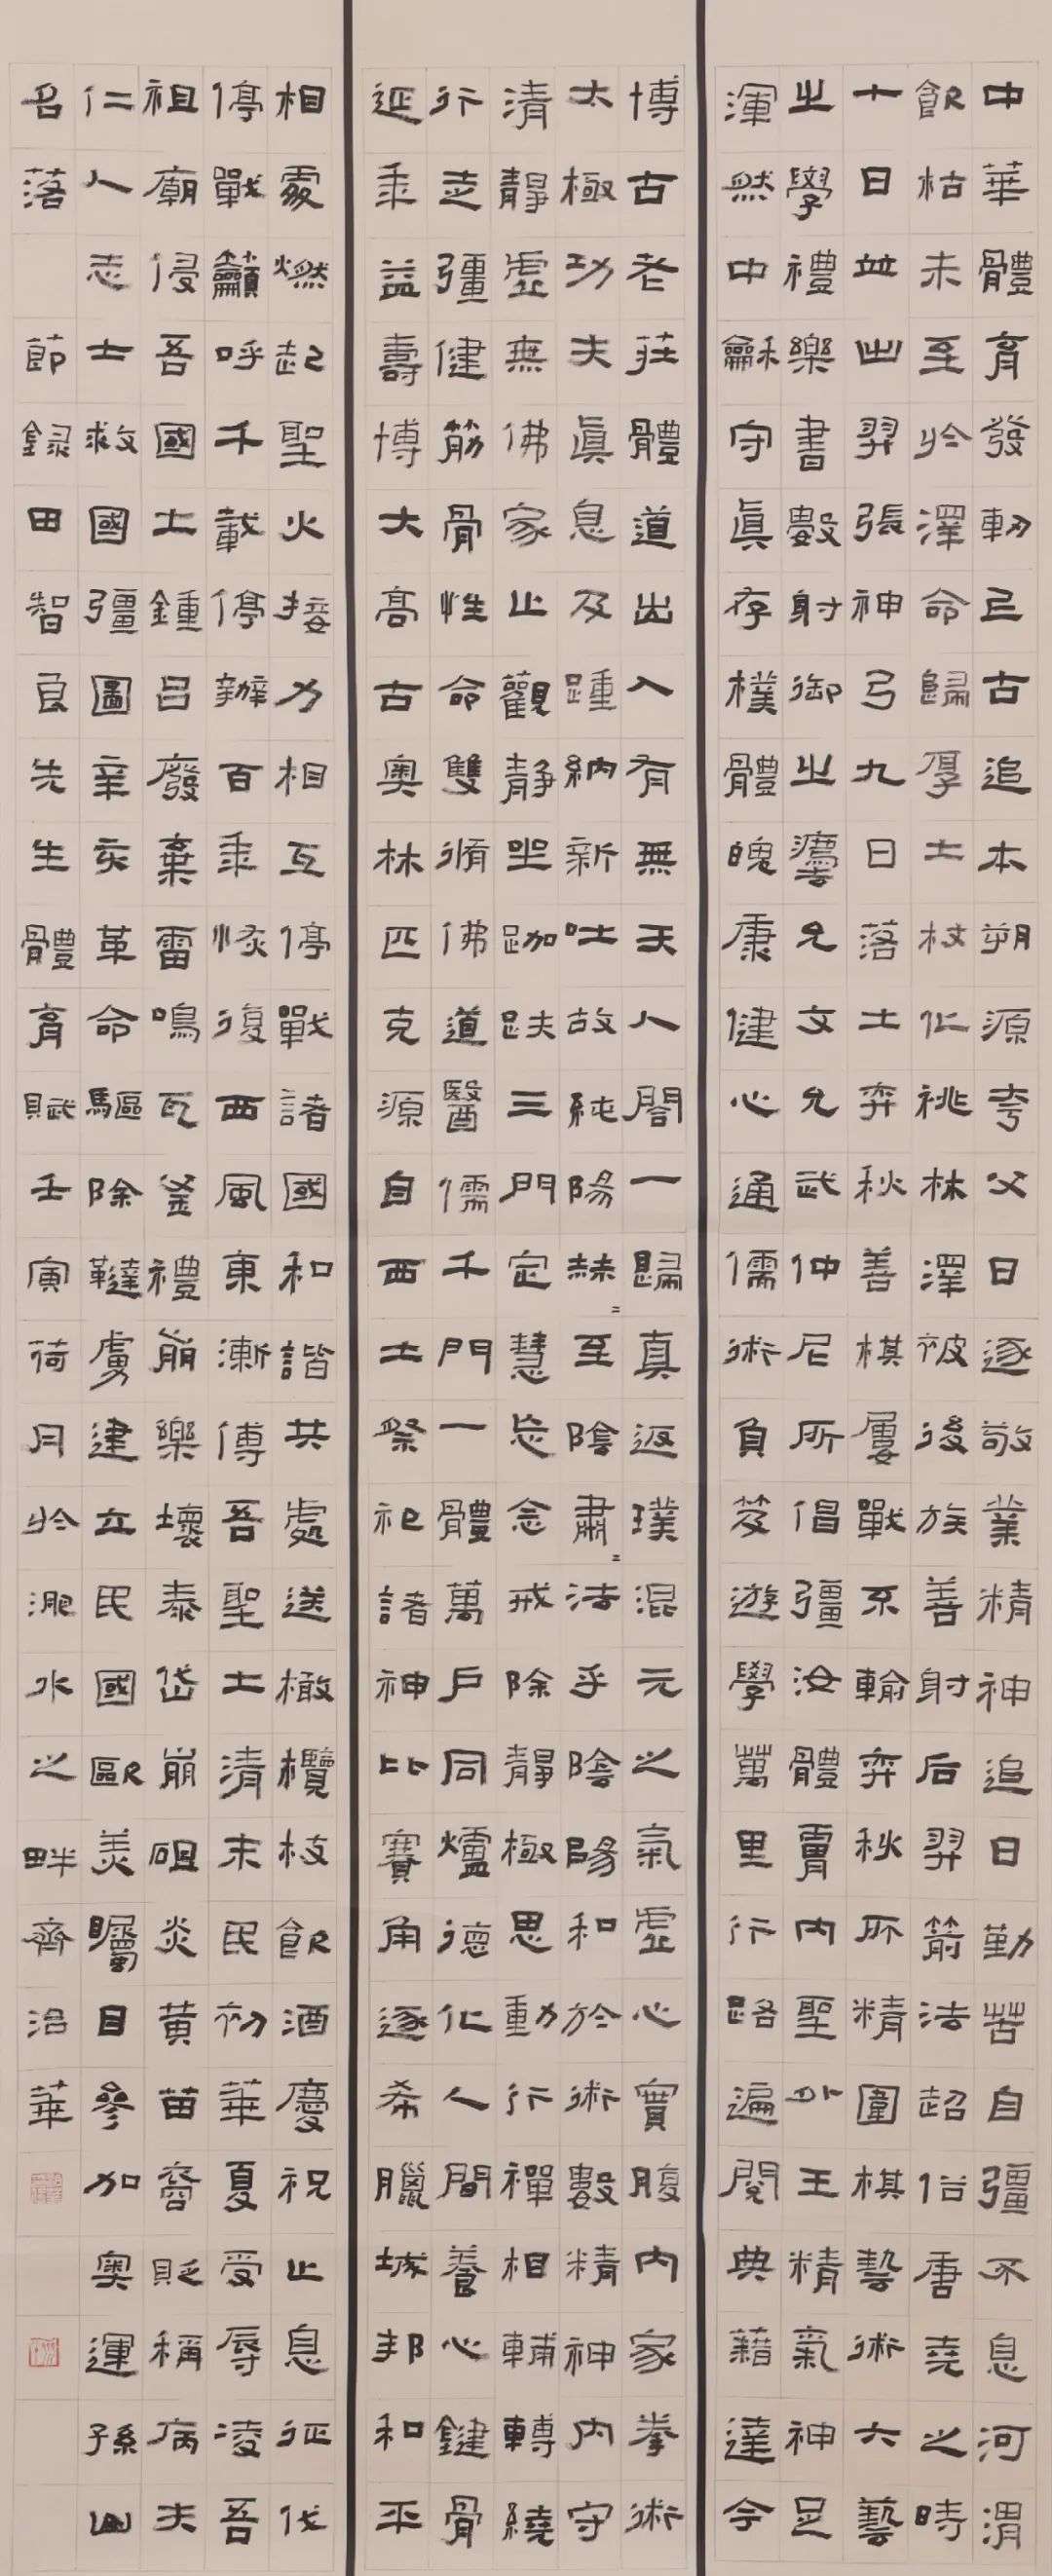 中華體育發軔上古追本朔源夸父日逐敬業精神追日勤苦自彊不息河渭
飲枯未至於澤命歸厚土杖化桃林澤被後族善射后羿箭法超俗唐堯之時
十日並出羿張神弓九日落土弈秋善棋屢戰不輸弈秋所精圍棋藝術六藝
之學禮樂書數射御之躋允文允武仲尼所倡彊汝體胃內聖外王精氣神足
渾然中龢守真存樸體魄康健心通儒術負笈遊學萬里行路遍閱典籍達今
博古老莊體道出入有無天人閤一歸真返璞混元之氣虛心實腹內家拳術
太極功夫眞息及踵納新吐故純陽赫二至陰肅二法乎陰陽和於術數精神內守
清靜虛無佛家止觀静坐跏趺三門定慧忘念戒除靜極思動行禪相輔轉繞
行走彊健筋骨性命雙脩佛道醫儒千門一體萬戶同爐德化人間養心鍵骨
延年益壽博大高古奧林匹克源自西土祭祀諸神比賽角逐希臘城邦和平
相處燃起聖火接力相互停戰諸國和諧共處送橄欖枝飲酒慶祝止息征伐
停戰籲呼千載停辦百年恢復西風東漸傳吾聖土清末民初華夏受辱凌吾
祖廟侵吾國土鍾呂廢棄雷鳴瓦釜禮崩樂壞泰岱崩咀炎黃苗裔貶稱病夫
仁人志士救國彊圖辛亥革命驅除韃虜建立民國歐美矚目參加奧運孫山
名落 節錄田智良先生體育賦壬寅荷月於淝水之畔齊治華